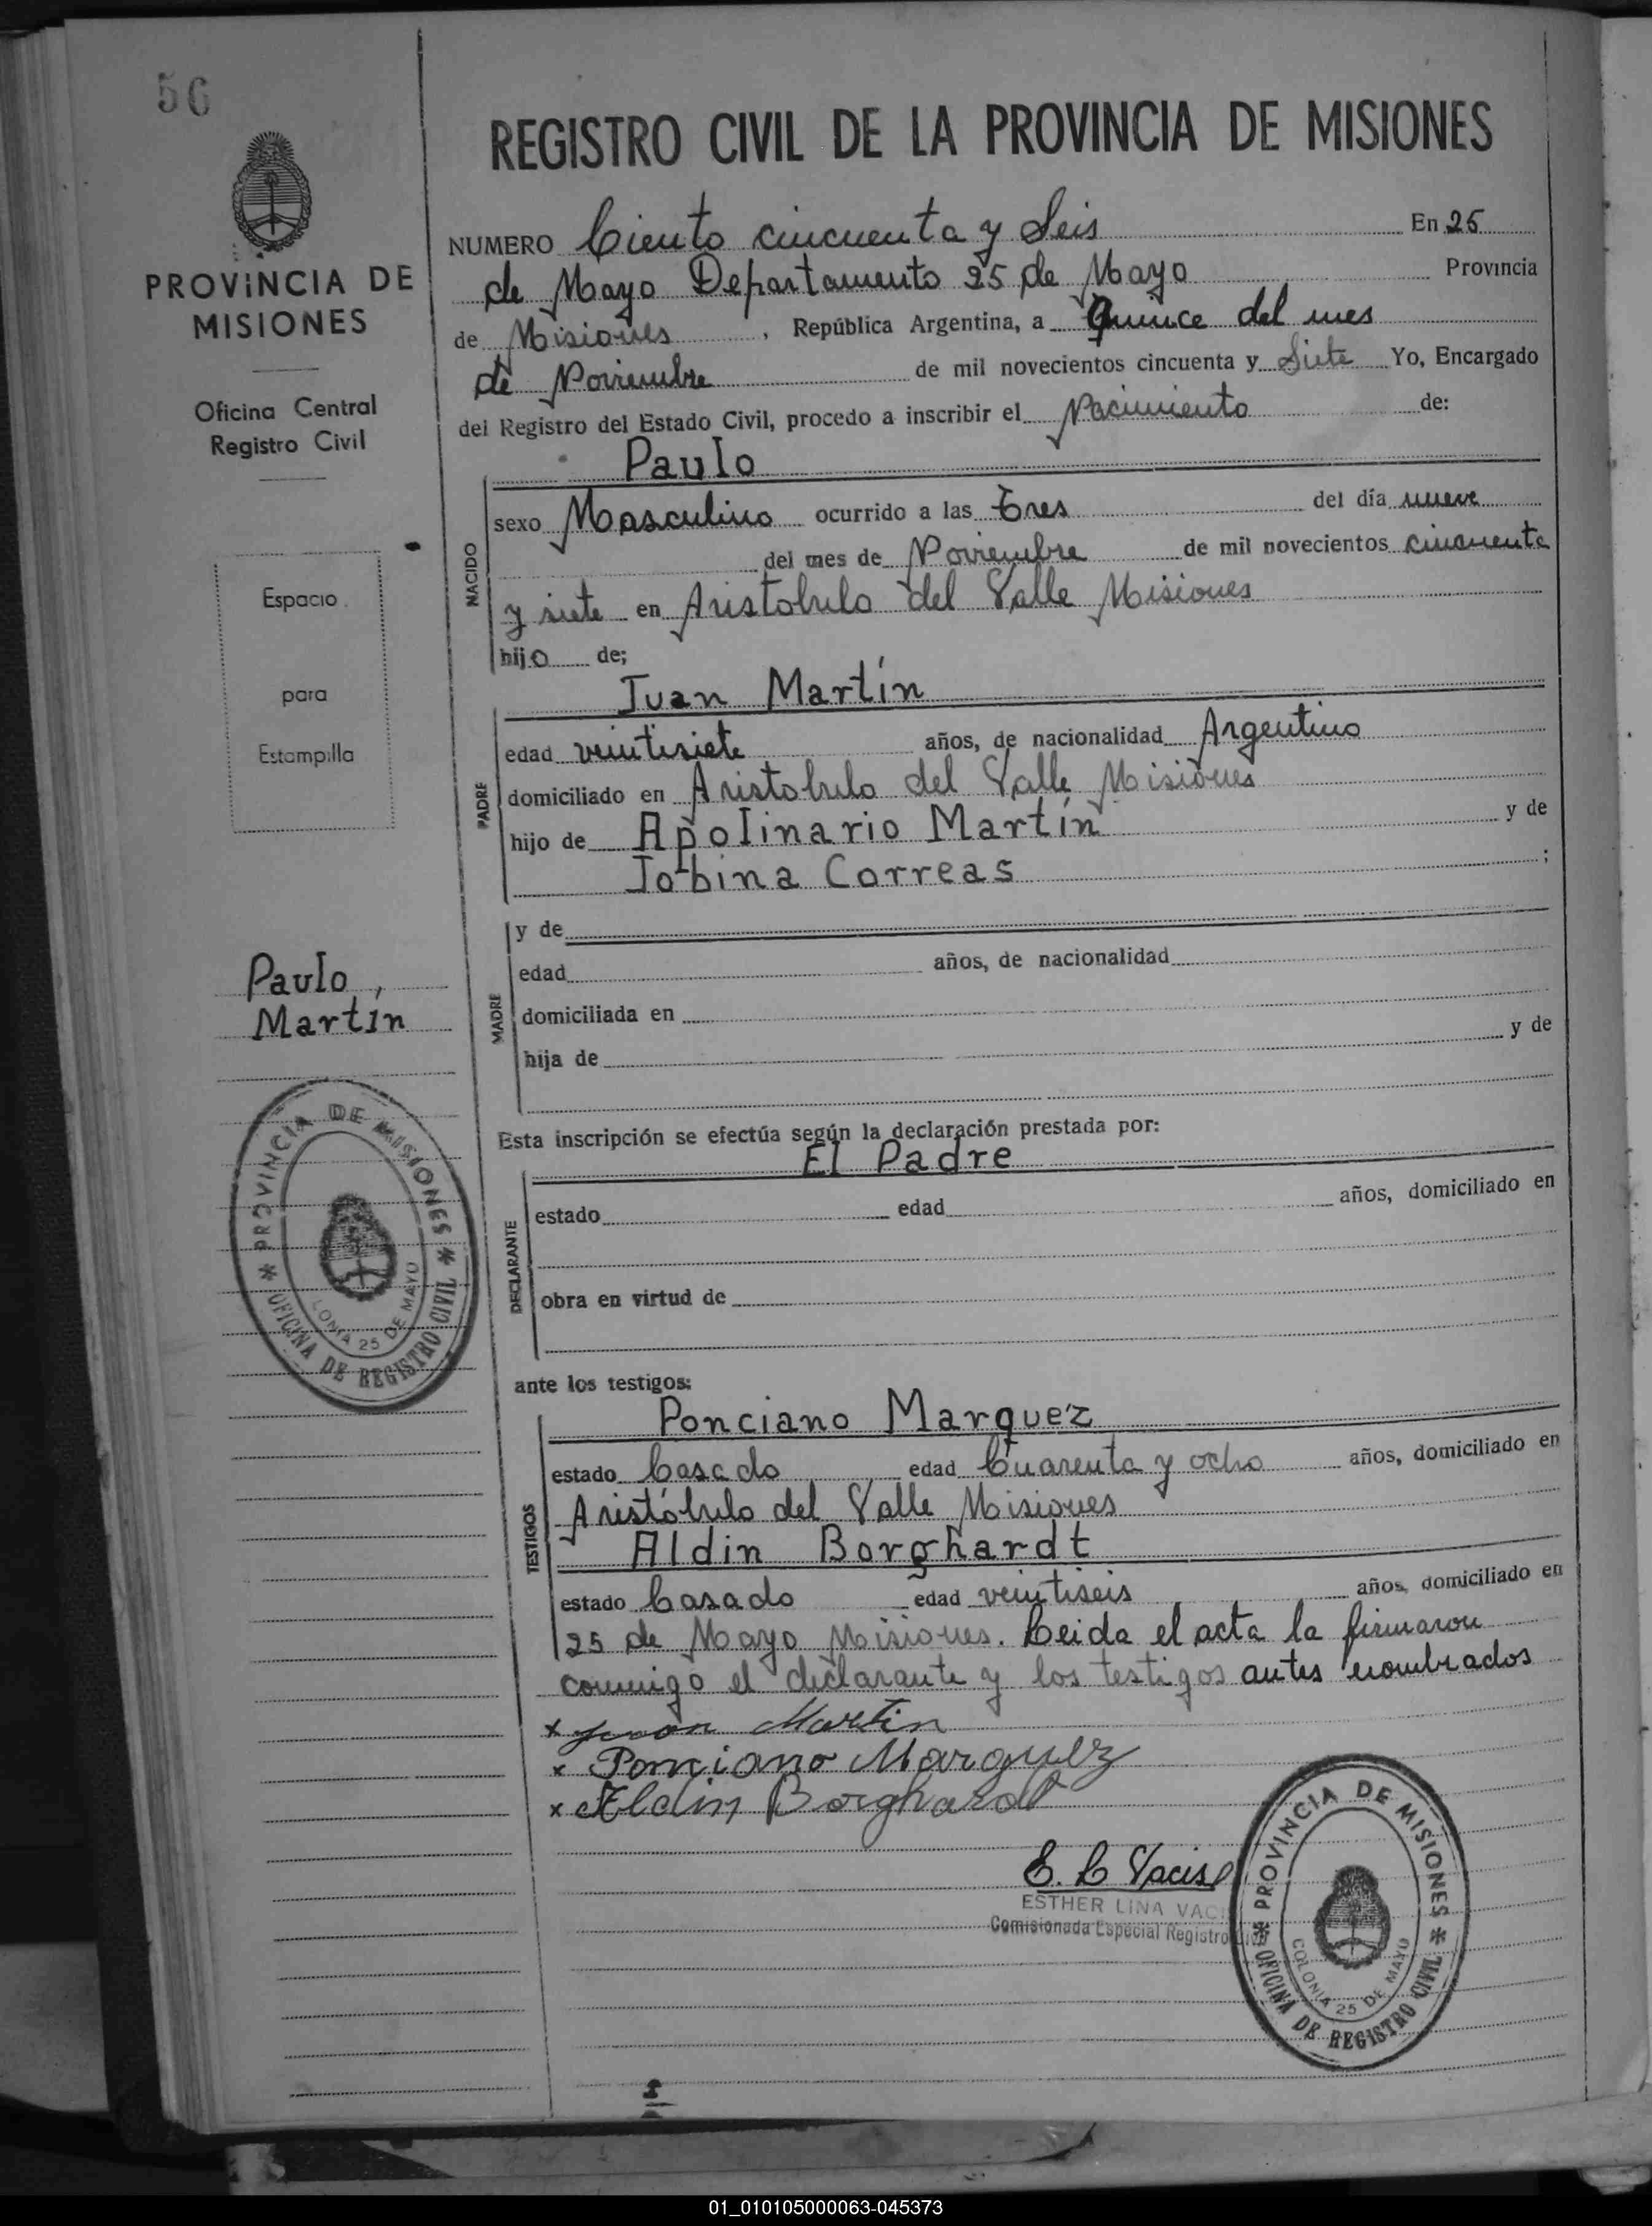 56
REGISTRO CIVIL DE LA PROVINCIA DE MISIONES
PROVINCIA DE
MISIONES
Oficina Central
Registro Civil
Espacio
para
Estampilla
Paulo,
Martín
PROVINCIA DE MISIONES
OFICINA DE REGISTRO CIVIL
LONIA 25 DE MAYO
NUMERO Ciento cincuenta y Seis En 25
de Mayo Departamento 25 de Mayo Provincia
de Misiones, República Argentina, a Quince del mes
de Noviembre de mil novecientos cincuenta y Siete Yo, Encargado
del Registro del Estado Civil, procedo a inscribir el Nacimiento de:
NACIDO
Paulo
sexo Masculino ocurrido a las Tres del día nueve
del mes de Noviembre de mil novecientos cincuenta
y siete en Aristobulo del Valle Misiones
hijo de;
PADRE
Juan Martín
edad veintisiete años, de nacionalidad Argentino
domiciliado en Aristobulo del Valle Misiones
hijo de Apolinario Martín y de
Jobina Correas ;
MADRE
y de
edad años, de nacionalidad
domiciliada en
hija de y de
Esta inscripción se efectúa según la declaración prestada por:
DECLARANTE
El Padre
estado edad años, domiciliado en
obra en virtud de
ante los testigos:
TESTIGOS
Ponciano Marquez
estado Casado edad Cuarenta y ocho años, domiciliado en
Aristóbulo del Valle Misiones
Aldin Borghardt
estado Casado edad veintiseis años, domiciliado en
25 de Mayo Misiones. Leida el acta la firmaron
conmigo el declarante y los testigos antes nombrados
x Juan Martin
x Ponciano Marquez
x Aldin Borghardt
E. L. Vacis
ESTHER LINA VAC
Comisionada Especial Registro Civil
PROVINCIA DE MISIONES
OFICINA DE REGISTRO CIVIL
COLONIA 25 DE MAYO
01_010105000063-045373